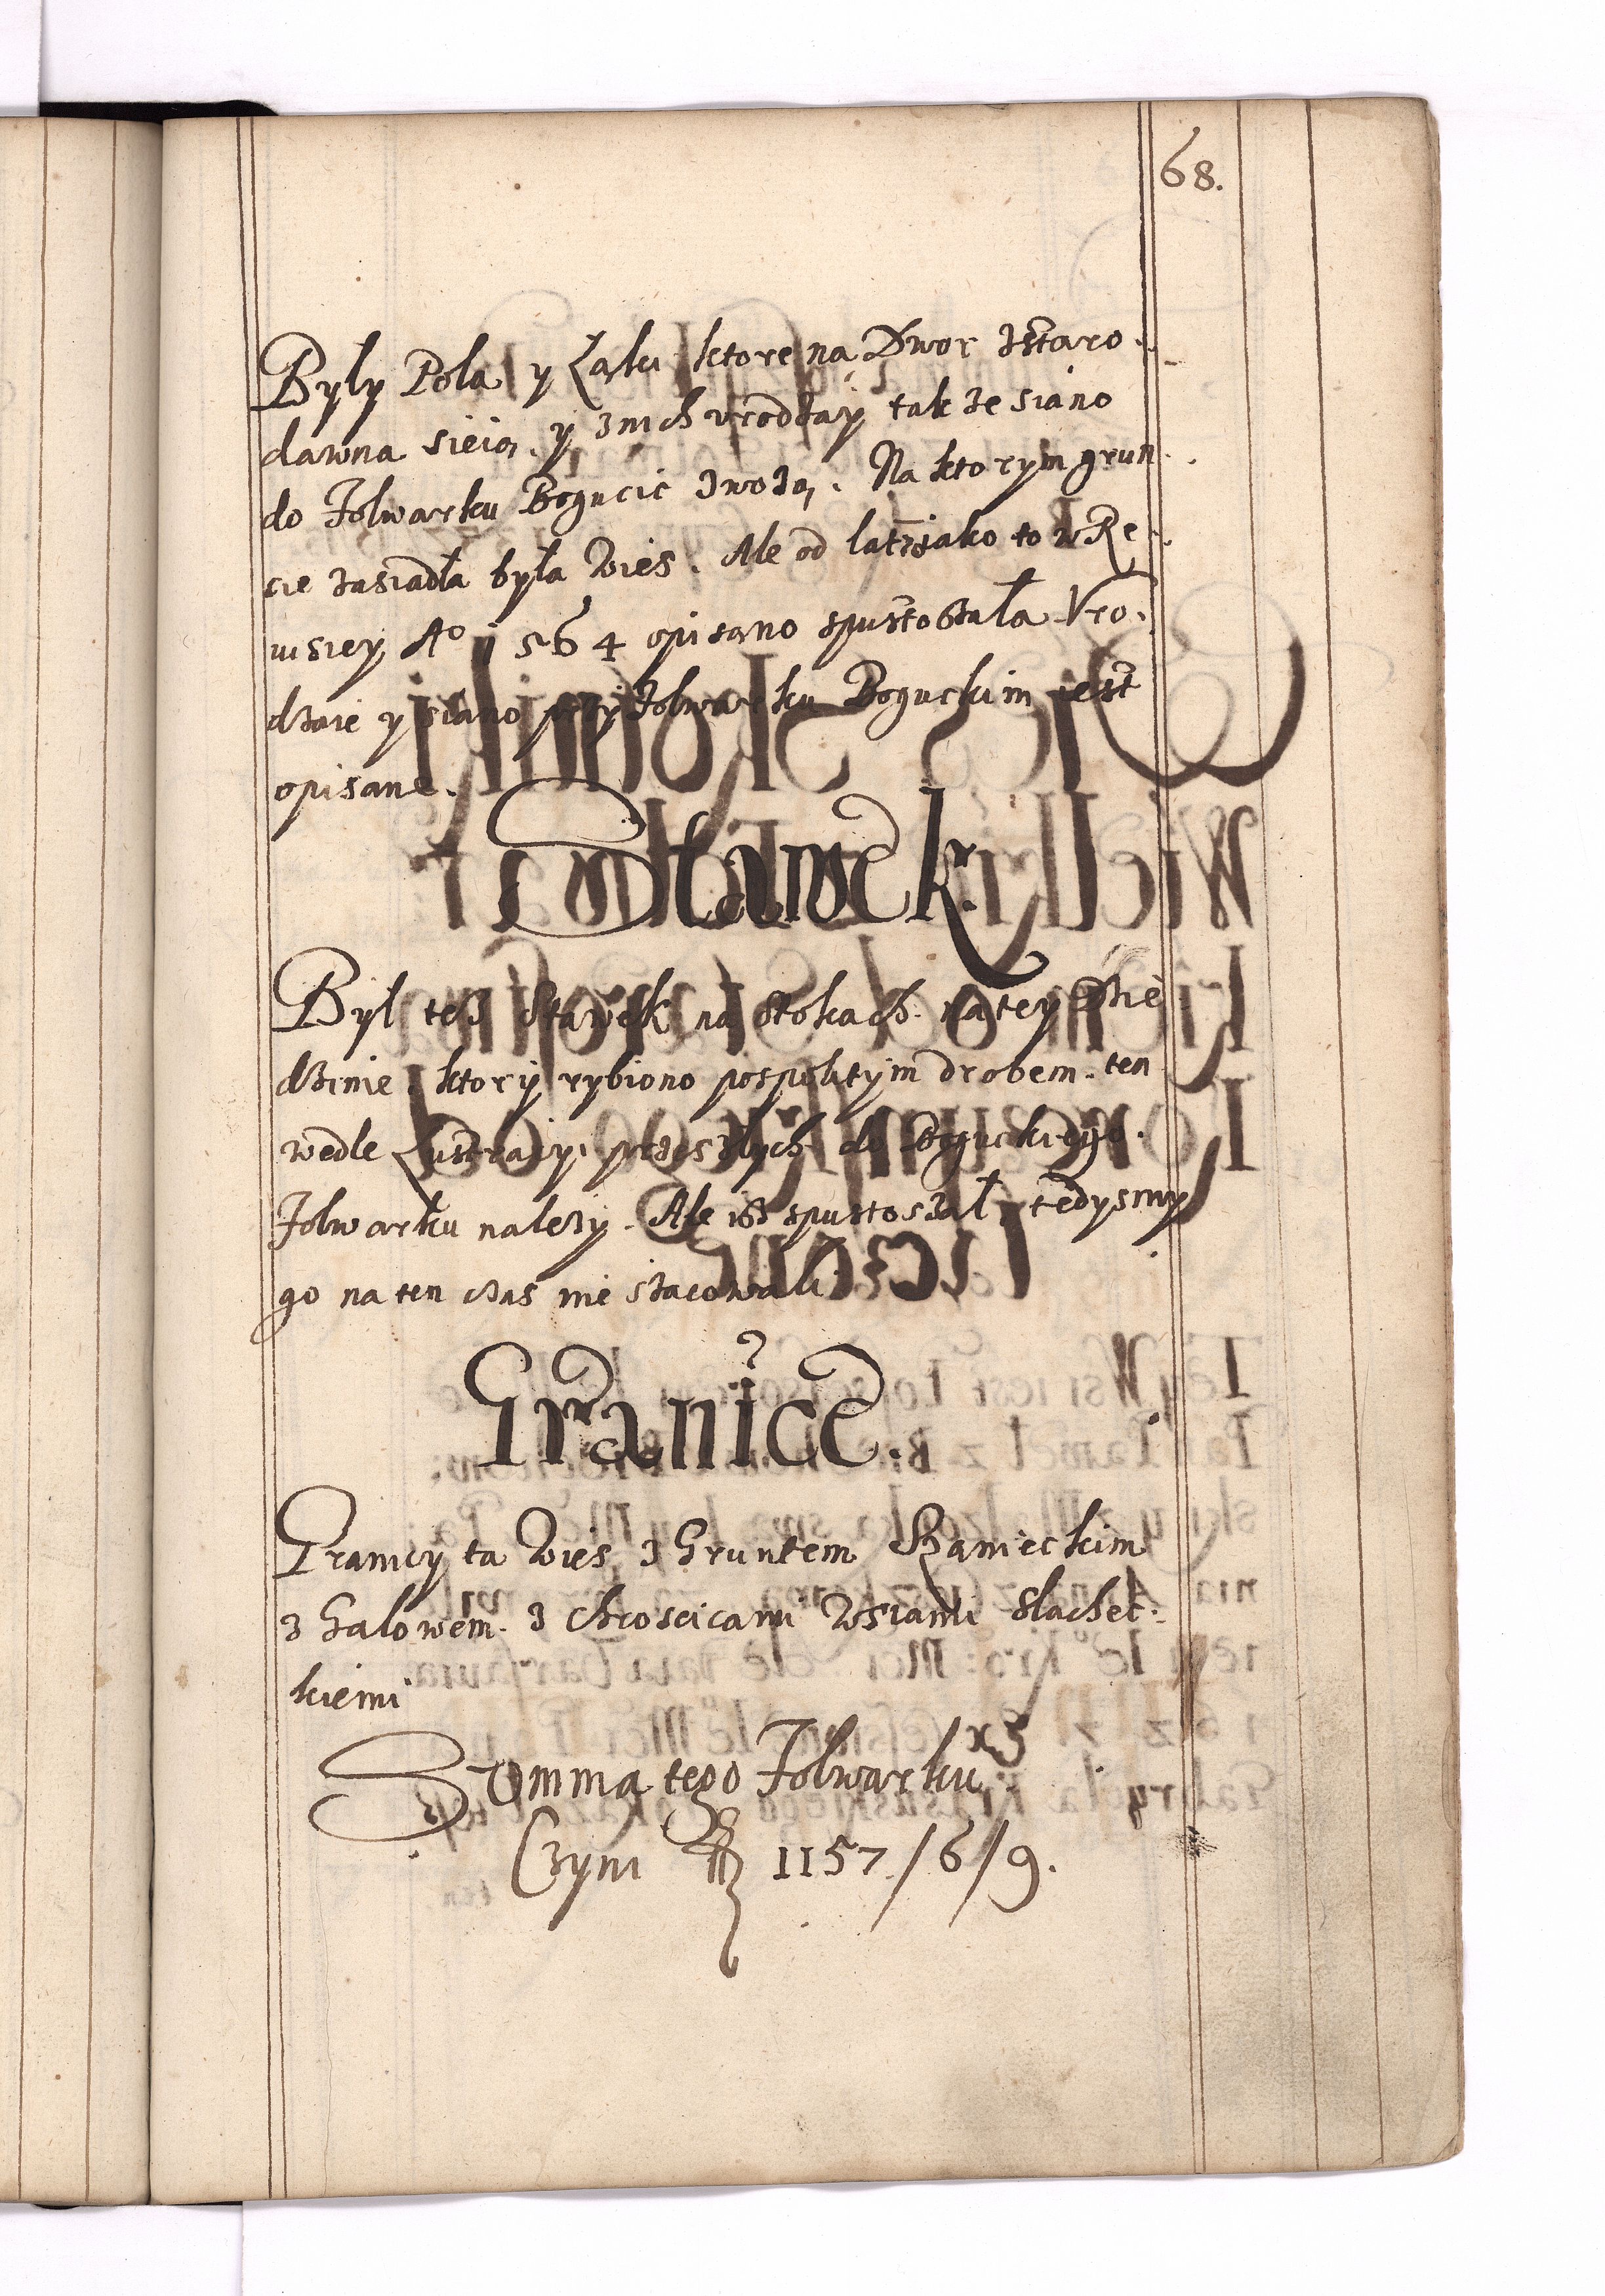 68.
Byly Pola y Łąki ktore na Dwor zstaro.
dawna sieią. y znich vrodzay takze siano
do Folwarku Bogucic zwożą. Na ktorym grun.
cie zasiadła była Wies. Ale od lat jako to w Re.
uisiey Aº 1564 opisano spustoszała Vro.
dzaie y siano przy Folwarku Boguckim iest
opisane.
Stawek.
Byl tesz Stawek na Stokach. na tey Dzie
dzinie. ktory rybiono pospolitym drobem. ten
wedle Lustracyi przeszlych do Boguckiego.
Folwarku nalezy. Ale isz spustoszał, tedysmy
go na ten czas nie szacowali
Granice.
Graniczy ta Wies z Gruntem Szanieckim
z Galowem. z Chroscicami Wsiami Slachet.
kiemi
Summa tego Folwarku
Czyni 1157/6/9.